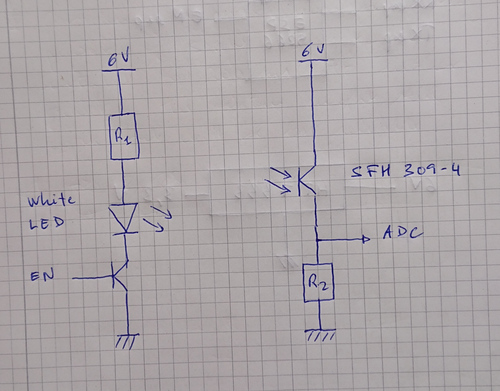 6V
R1
White
LED
EN
6V
SFH 309-4
ADC
R2